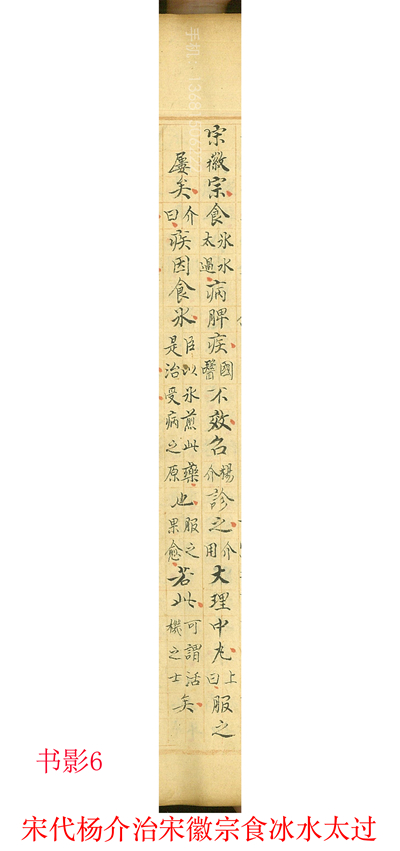 宋徽宗食氷水太過病脾疾國醫不效召楊介診之介用大理中丸上曰服之
屡矣介曰疾因食氷臣以氷煎此藥是治受病之原也服之果愈若此可謂活機之士矣
书影6
宋代杨介治宋徽宗食冰水太过